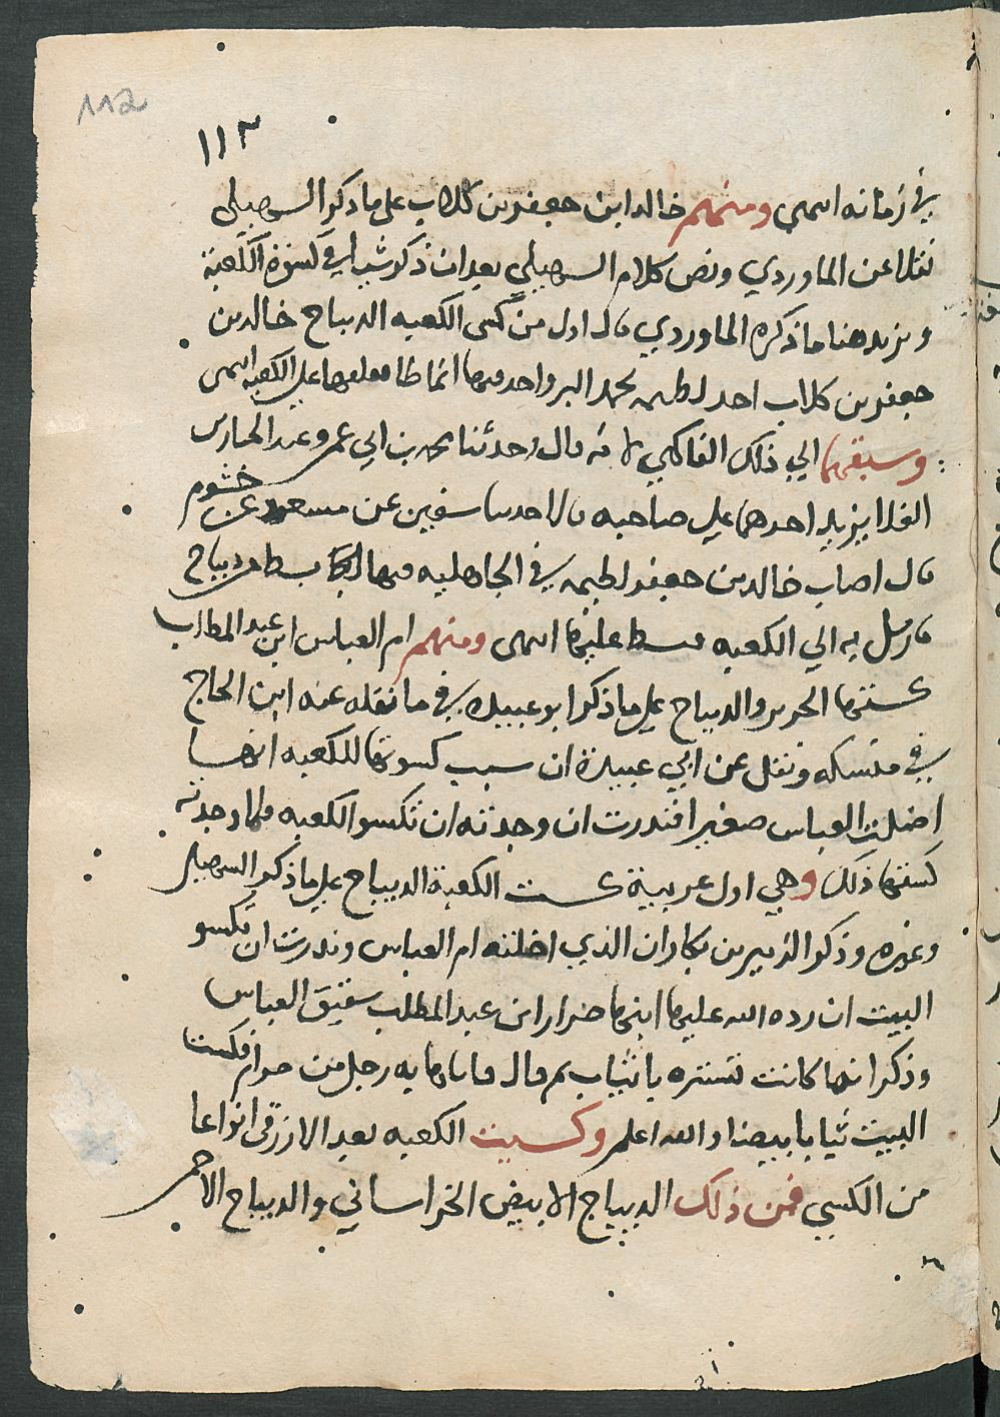 112
١١٢
في زمانه انتهى ومنهم خالد ابن جعفر بن كلاب على ما ذكر السهيلي
نقلا عن الماوردي ونص كلام السهيلي بعد ان ذكر شيا في كسوة الكعبة
ويزيد هنا ما ذكره الماوردي قال اول من كسى الكعبه الديباج خالد بن
جعفر بن كلاب اخذ لطيمه تحمل البر واخذ فيها انماطا فعلقها على الكعبه انتهى
وسبقهما الي ذلك الفاكهي لانه قال وحدثنا محمد بن ابي عمر وعبد الجبار
يزيد احدهما على صاحبه قالا حدثنا سفين عن مسعر عن خشرم
قال اصاب خالد بن جعفر لطيمه في الجاهليه فيها نمط من ديباج
فارسل به الي الكعبه فبسط عليها انتهى ومنهم ام العباس ابن عبد المطلب
كستها الحرير والديباج على ما ذكر ابو عبيده في ما نقله عنه ابن الحاج
في منسكه ونقل عن ابي عبيدة ان سبب كسوتها للكعبه انها
اضلت العباس صغيرا فنذرت ان وجدته ان تكسو الكعبه فلما وجدته
كستها ذلك وهي اول عربية كست الكعبة الديباج على ما ذكر السهيلي
وغيره وذكر الزبير بن بكار ان الذي اضلته ام العباس ونذرت ان تكسو
البيت ان رده الله عليها ابنها ضرار ابن عبد المطلب شقيق العباس
وذكر انها كانت تستره بالثياب ثم قال فاتاها به رجل من جذام فكست
البيت ثيابا بيضا والله اعلم وكسيت الكعبه بعد الازرقي انواعا
من الكسي فمن ذلك الديباج الابيض الخراساني والديباج الاحمر